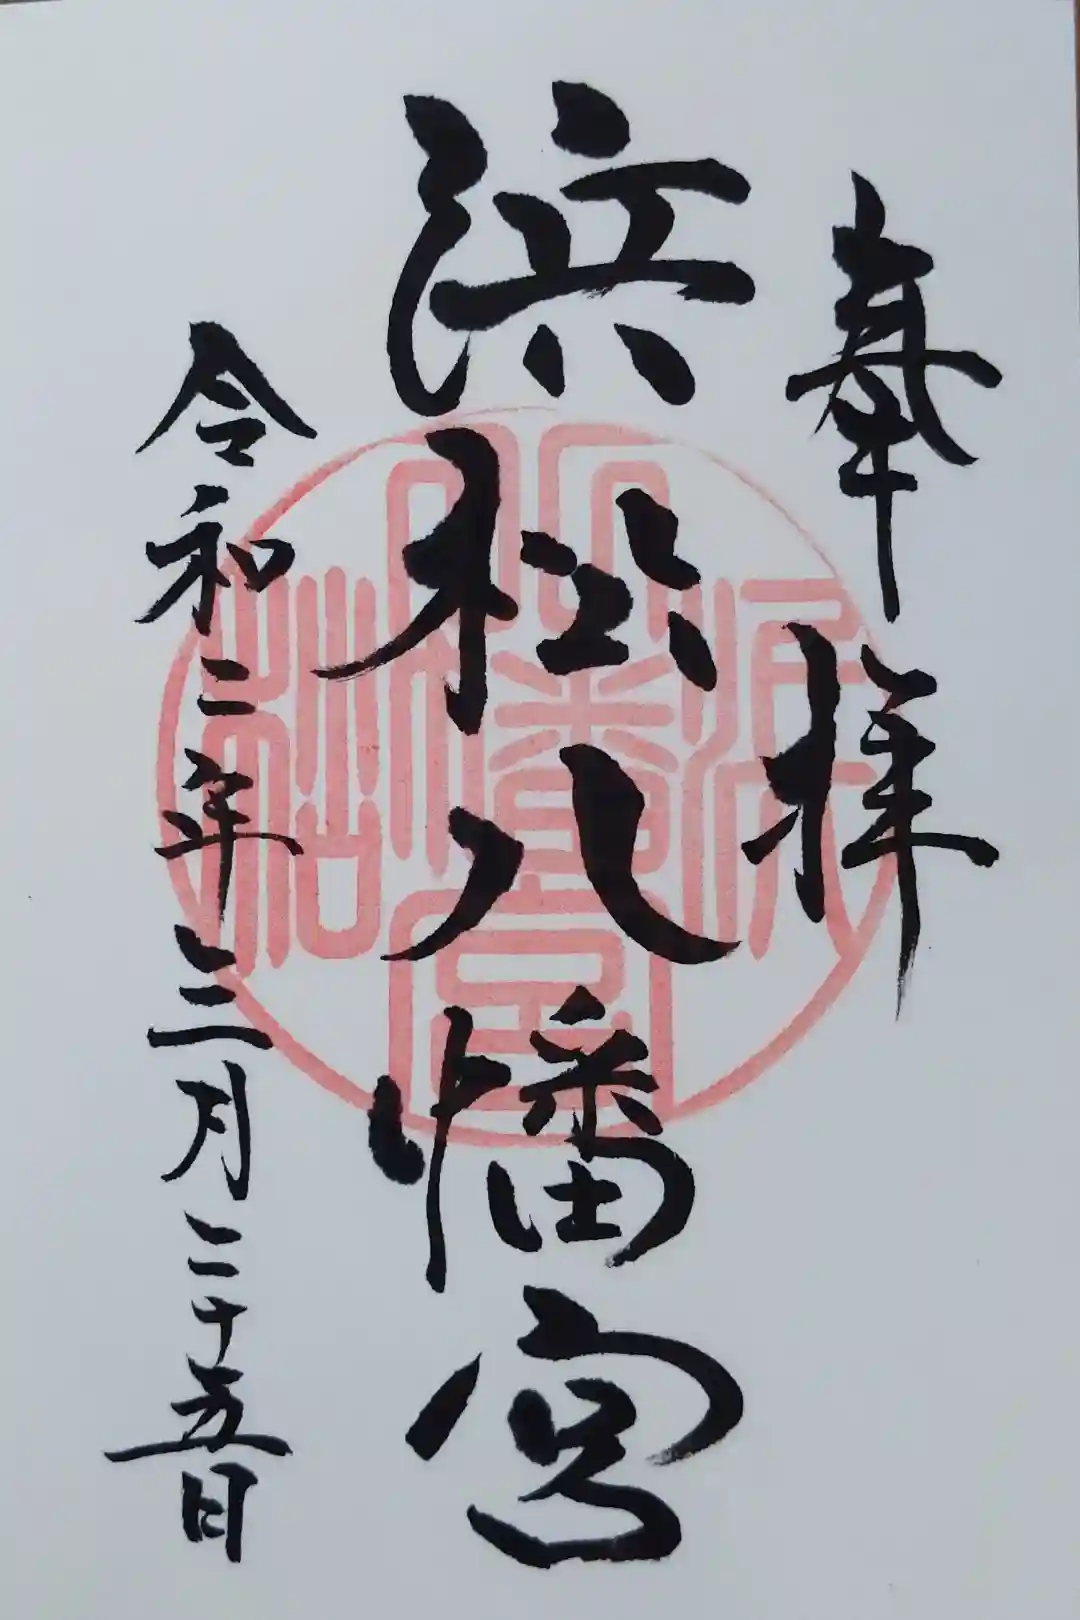 奉拝
浜松八幡宮
令和二年三月二十五日
浜松八幡宮